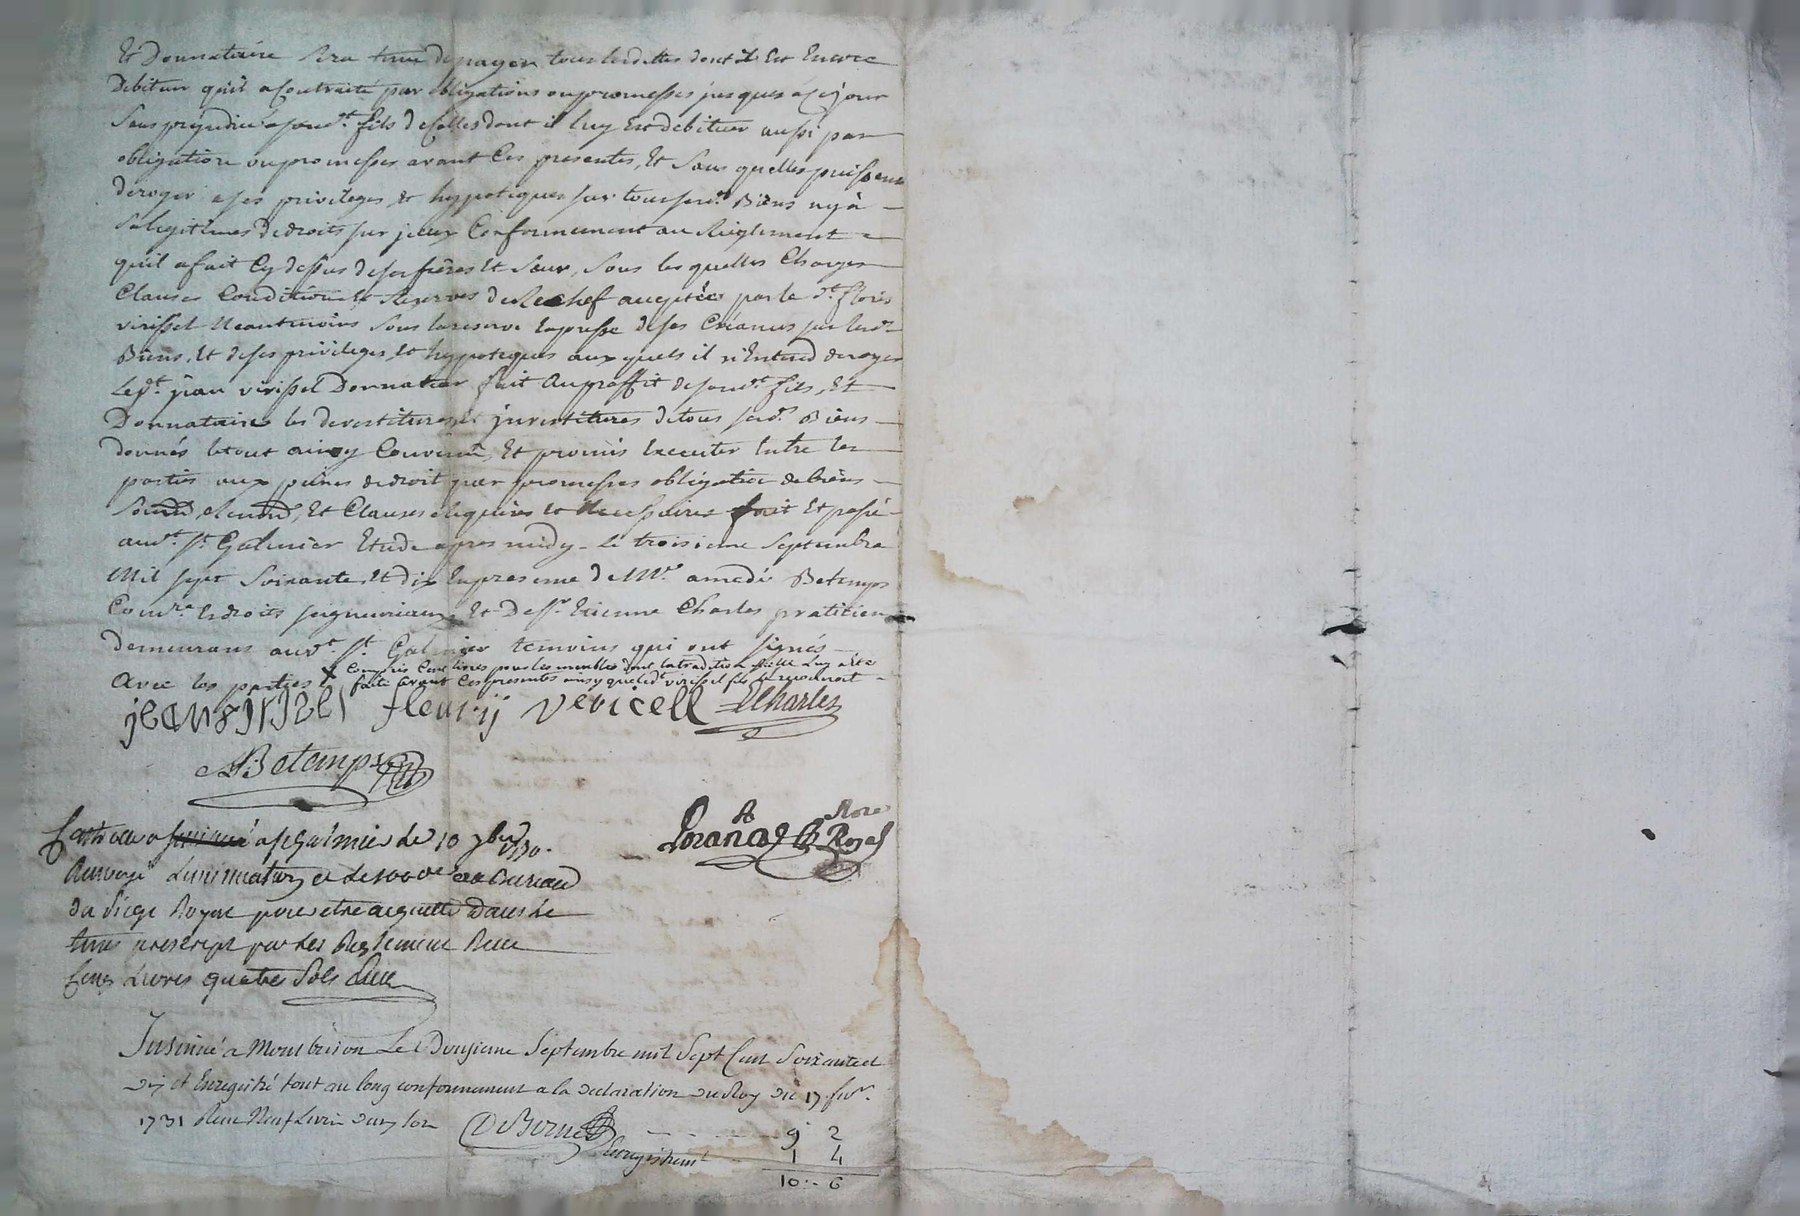 Et Donnataire sera tenu de payer tous les dettes dont il Est Encore
Debiteur qu'il a Contracté par obligations ou promesses jusques à ce jour
Sans prejudice a sond.t fils de Celles dont il luy Est debiteur aussi par
obligation ou promesses avant Ces presentes, Et sans quelles puissent
deroger a ses privileges & hypoteques sur tous sesd. Biens ny à
Sa legitimes de droits sur jceux Conformement au Reglement
qu'il a fait Cy dessus de ses frères Et Sœur, Sous les quelles Charges
Clauses Conditions & Reserves de Rechef acceptées par le d.t floris
virissel Neantmoins Sous la reserve Expresse de ses Créances sur lesd.
Biens, Et de ses privileges & hypoteques aux quels il n'Entend deroger
Led.t jean virissel Donnateur fait Au proffit de sond.t fils, Et
Donnataire les devestitures & jnvestitures de tous sesd. Biens
donnés le tout ainsy Convenu, Et promis Executer Entre les
parties aux peines de droit par promesses obligation de biens
Soumd. Renond., Et Clauses Requises Et Necessaires fait Et passé
aud.t S.t Galmier Etude apres midy le troisieme Septembre
Mil sept Soixante Et dix En presence de M.re amedé Betemps
Comm.re Es droits seigneuriaux Et De S.r Etienne Charles pratitien
demeurans aud.t S.t Galmier temoins qui ont signés
Avec les parties x Compris Cent livres pour les meubles dont la tradition Reelle luy a été
faite avant Ces presentes ainsy que led.t virissel fils le reconnoit
jean virisel fleurij vericell ECharles
ABetemps
Rore
Contrôlé a St Galmier le 10 7bre 1770.
Renvoyé L'insinuation et le 100e au Bureau
du Siege Royal pour etre acquitté Dans le
tems prescript par les Reglement Reçu
Cinq Livres quatre Sols
Insinué a Montbrison Le Douzieme Septembre mil Sept Cent Soixante et
Dix et Enregistré tout au long conformement a la declaration du Roy du 17 fevr.
1731 Reçu Neuf Livres deux sols DeBorne 9 2
Enregistremt 1 4
10 .. 6